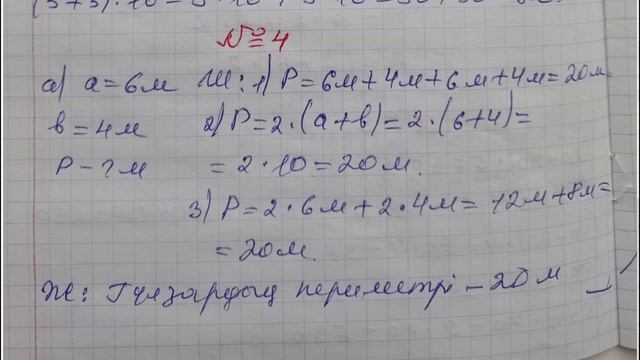 №4
а) а=6м Ш: 1) Р=6м+4м+6м+4м=20м
в=4м 2) Р=2·(а+в)=2·(6+4)=
Р-?м =2·10=20м.
3) Р=2·6м+2·4м=12м+8м=
=20м.
Ж: Гүлзардың периметрі - 20 м